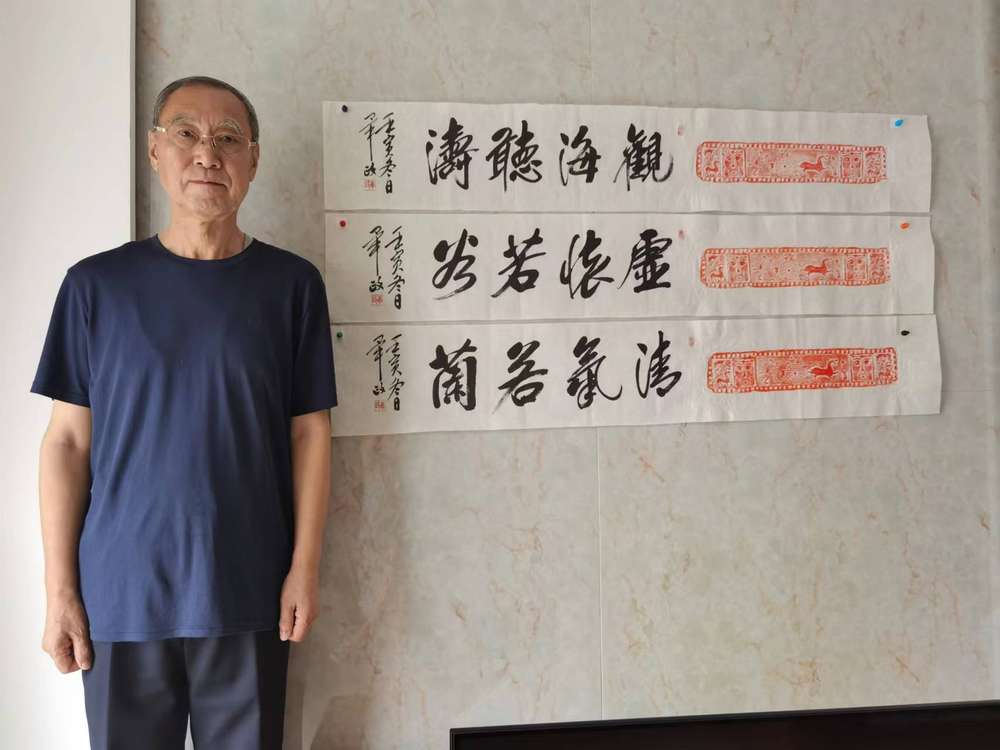 觀海聽濤
壬寅冬日
虛懷若谷
壬寅冬日
清氣若蘭
壬寅冬日